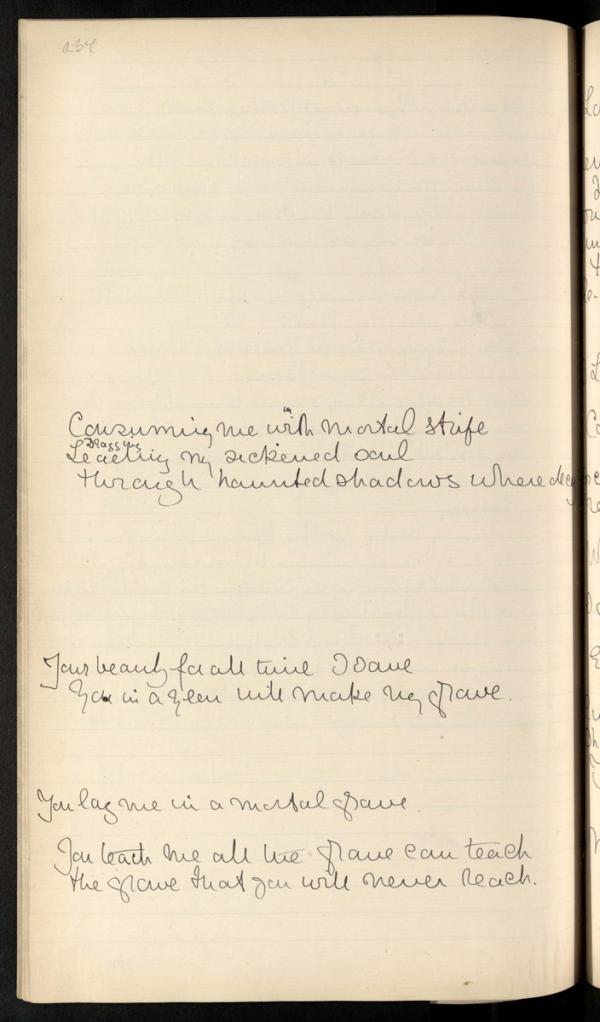 234
Consuming me in with mortal strife
Dragging
Leading my sickened soul
through haunted shadows where
Your beauty for all time I save
You in a year will make my grave.
You lay me in a mortal grave
You teach me all the grave can teach
the grave that you will never reach.